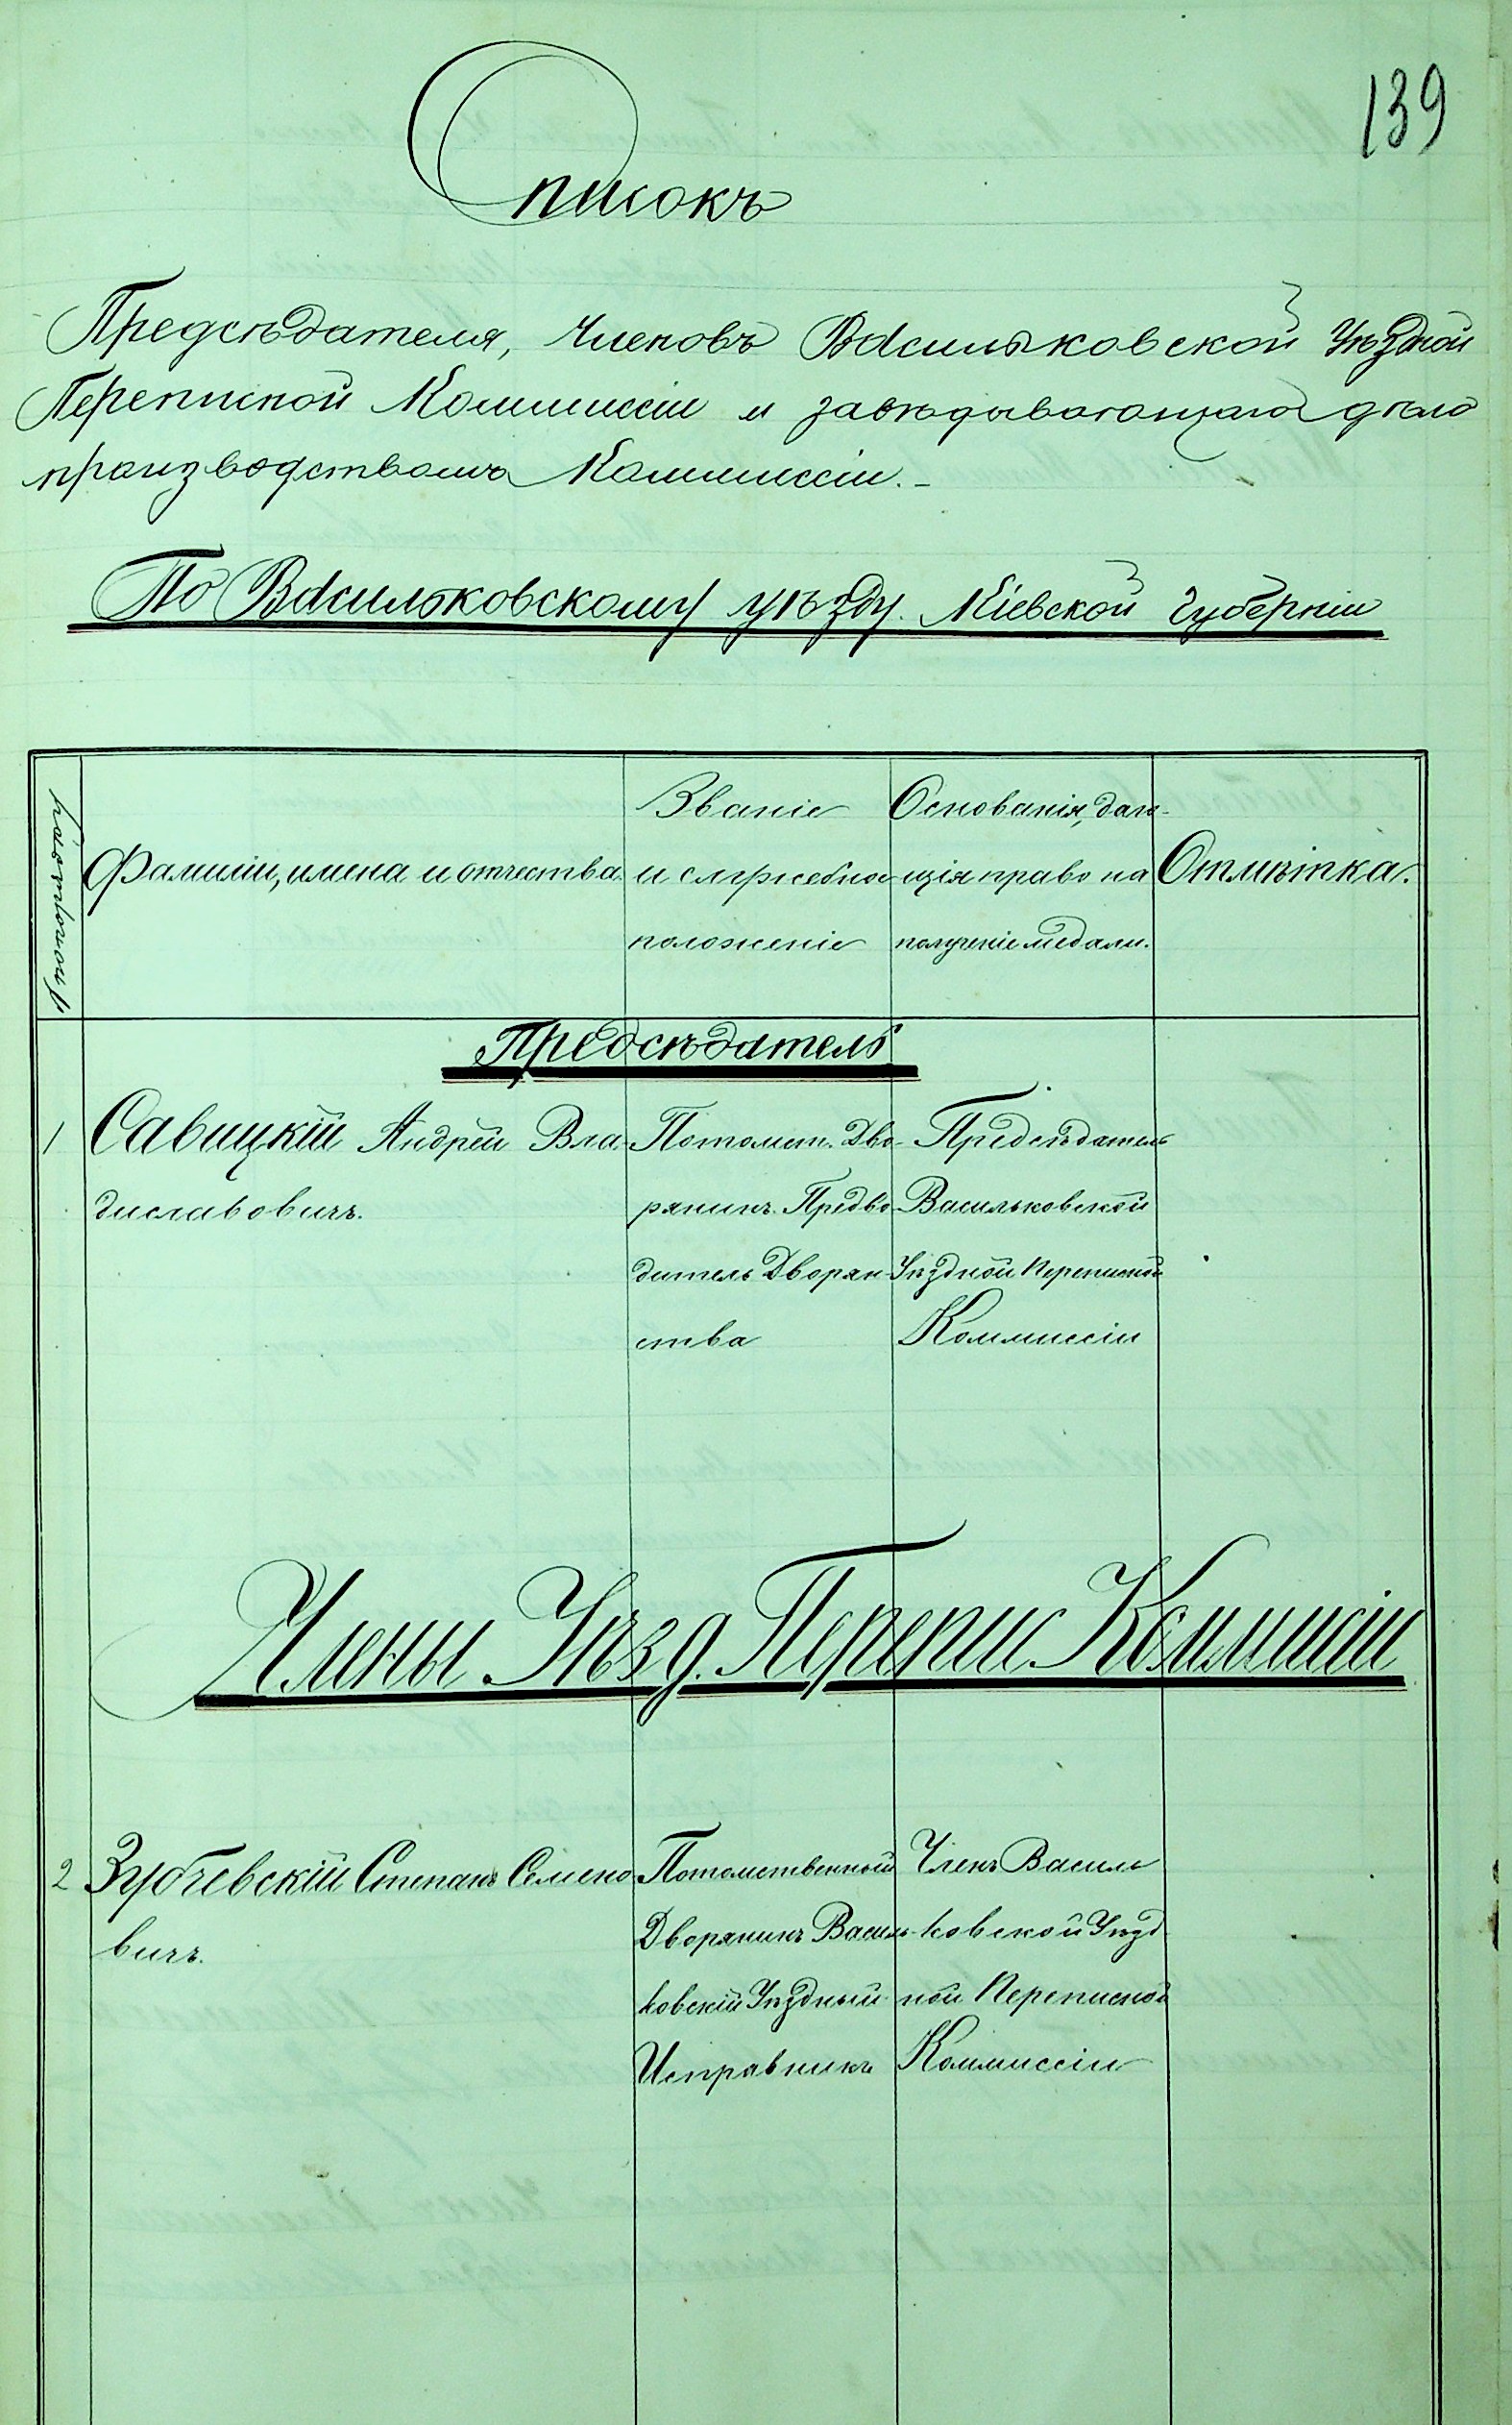 139
Списокъ
Предсѣдателя, Членовъ Васильковской Уѣздной
Переписной Коммиссіи и завѣдывающаго дѣло
производствомъ Коммиссіи.-
По Васильковскому уѣзду. Кіевской Губерніи
Фамиліи, имена и отчества.
Званіе
и служебное
положеніе
Основанія, даю-
щія право на
полученіе медали.
Отмѣтка.
Предсѣдатель
1
Савицкій Андрей Вла-
диславовичъ.
Потомст. Дво-
рянинъ. Предво-
дитель Дворян-
ства
Предсѣдатель
Васильковской
Уѣздной Переписной
Коммиссіи
Члены Уѣзд. Перепис. Коммисіи
2
Зубчевскій Степанъ Семено-
вичъ.
Потомственный
Дворянинъ Василь-
ковскій Уѣздный
Исправникъ
Членъ Василь
ковской Уѣзд-
ной Переписной
Коммиссіи